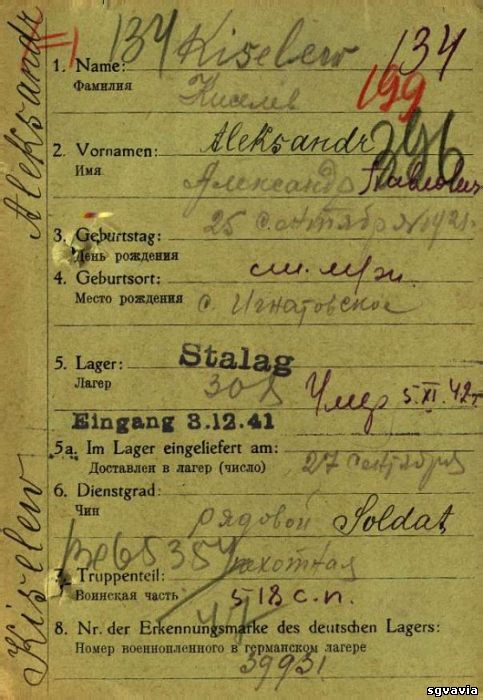 134 Kiselew 134
1. Name:
Фамилия Киселев
199
Aleksandr 296
2. Vornamen:
Имя Александр Павлович
25 сентября 1921.
3. Geburtstag:
День рождения
4. Geburtsort:
Место рождения с. Игнатовское
5. Lager: Stalag
Лагер 308 Умер 5.XI.42г.
Eingang 3.12.41
5a. Im Lager eingeliefert am:
Доставлен в лагер (число) 27 сентября
6. Dienstgrad:
Чин рядовой Soldat
пехотная
7. Truppenteil:
Воинская часть: 518 с.п.
8. Nr. der Erkennungsmarke des deutschen Lagers:
Номер военнопленного в германском лагере
39931
Kiselew Aleksandr
sgvavia